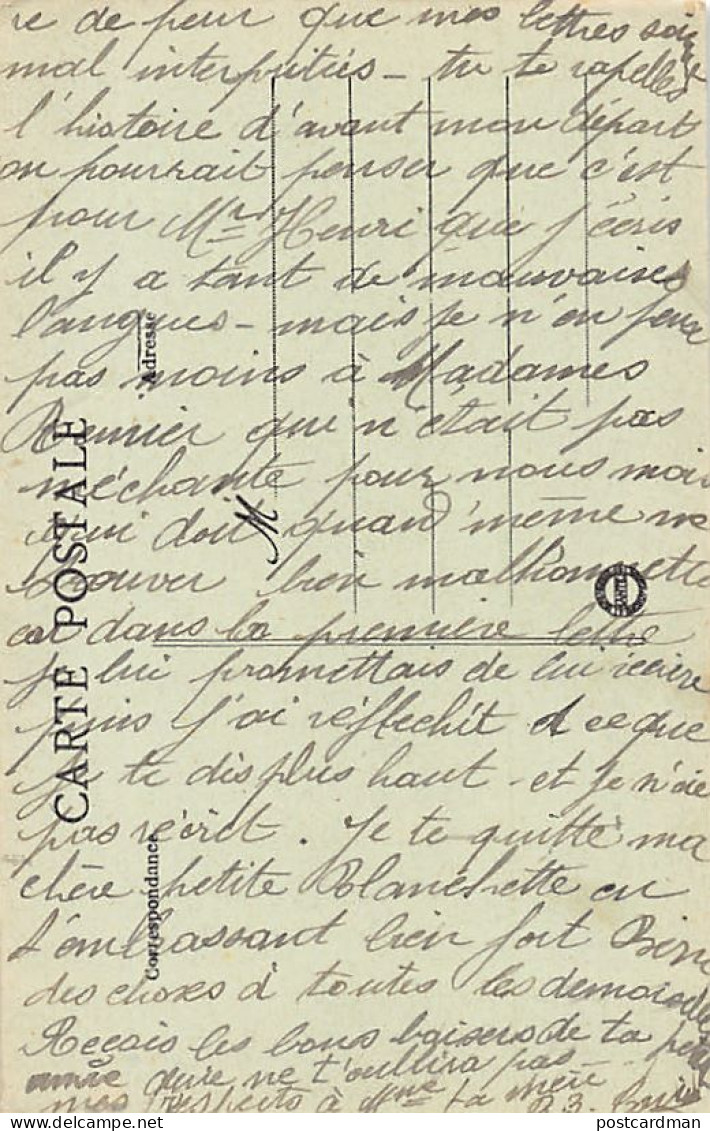 re de peur que mes lettres soient
mal interpritiés - tu te rapelles
l'histoire d'avant mon départ
on pourrait penser que c'est
pour Mr Henri que j'écris
il y a tant de mauvaises
langues - mais je n'en peux
pas moins à Madames
qui n'était pas
méchante pour nous mais
qui doit quand même me
trouver bien malhonnette
car dans la première lettre
je lui promettais de lui récrire
puis j'ai réflechit à ce que
je te dis plus haut - et je n'ai
pas récrit. Je te quitte ma
chère petite Blanchette en
t'embrassant bien fort Bien
des choses à toutes les demoiselles
Reçois les bons baisers de ta petite
amie qui ne t'oublira pas
mes respects à Mme ta mère
CARTE POSTALE
Correspondance
Adresse
M
postcardman